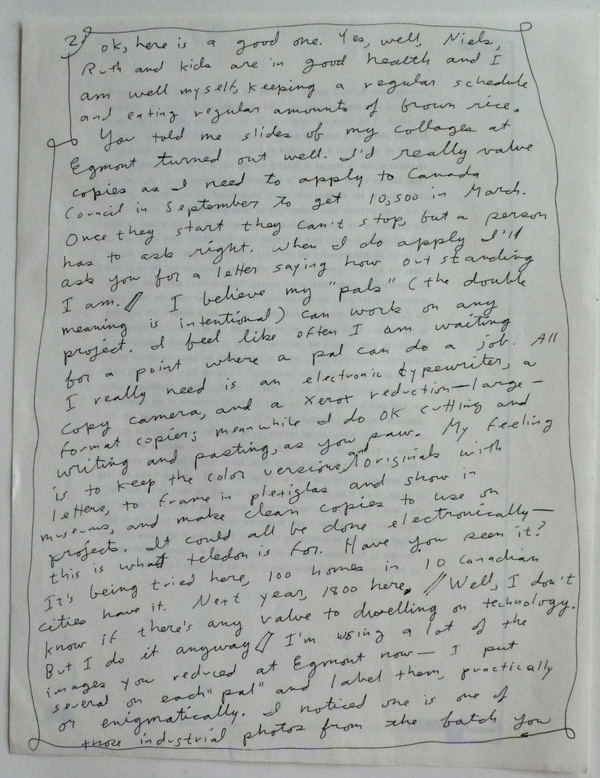 2) ok, here is a good one. Yes, well, Niels,
Ruth and kids are in good health and I
am well myself, keeping a regular schedule
and eating regular amounts of brown rice.
You told me slides of my collages at
Egmont turned out well. I'd really value
copies as I need to apply to Canada
Council in September to get 10,500 in March.
Once they start they can't stop, but a person
has to ask right. When I do apply I'll
ask you for a letter saying how outstanding
I am. // I believe my "pals" (the double
meaning is intentional) can work on any
project. I feel like often I am waiting
for a point where a pal can do a job. All
I really need is an electronic typewriter, a
copy camera, and a xerox reduction—large-
format copier; meanwhile I do OK cutting and
writing and pasting, as you saw. My feeling
is to keep the color versions, and originals with
letters, to frame in plexiglas and show in
museums, and make clean copies to use on
projects. It could all be done electronically—
this is what teledon is for. Have you seen it?
It's being tried here, 100 homes in 10 Canadian
cities have it. Next year, 1800 here. // Well, I don't
know if there's any value to dwelling on technology.
But I do it anyway // I'm using a lot of the
images you reduced at Egmont now— I put
several on each "pal" and label them, practically
or enigmatically. I noticed one is one of
those industrial photos from the batch you